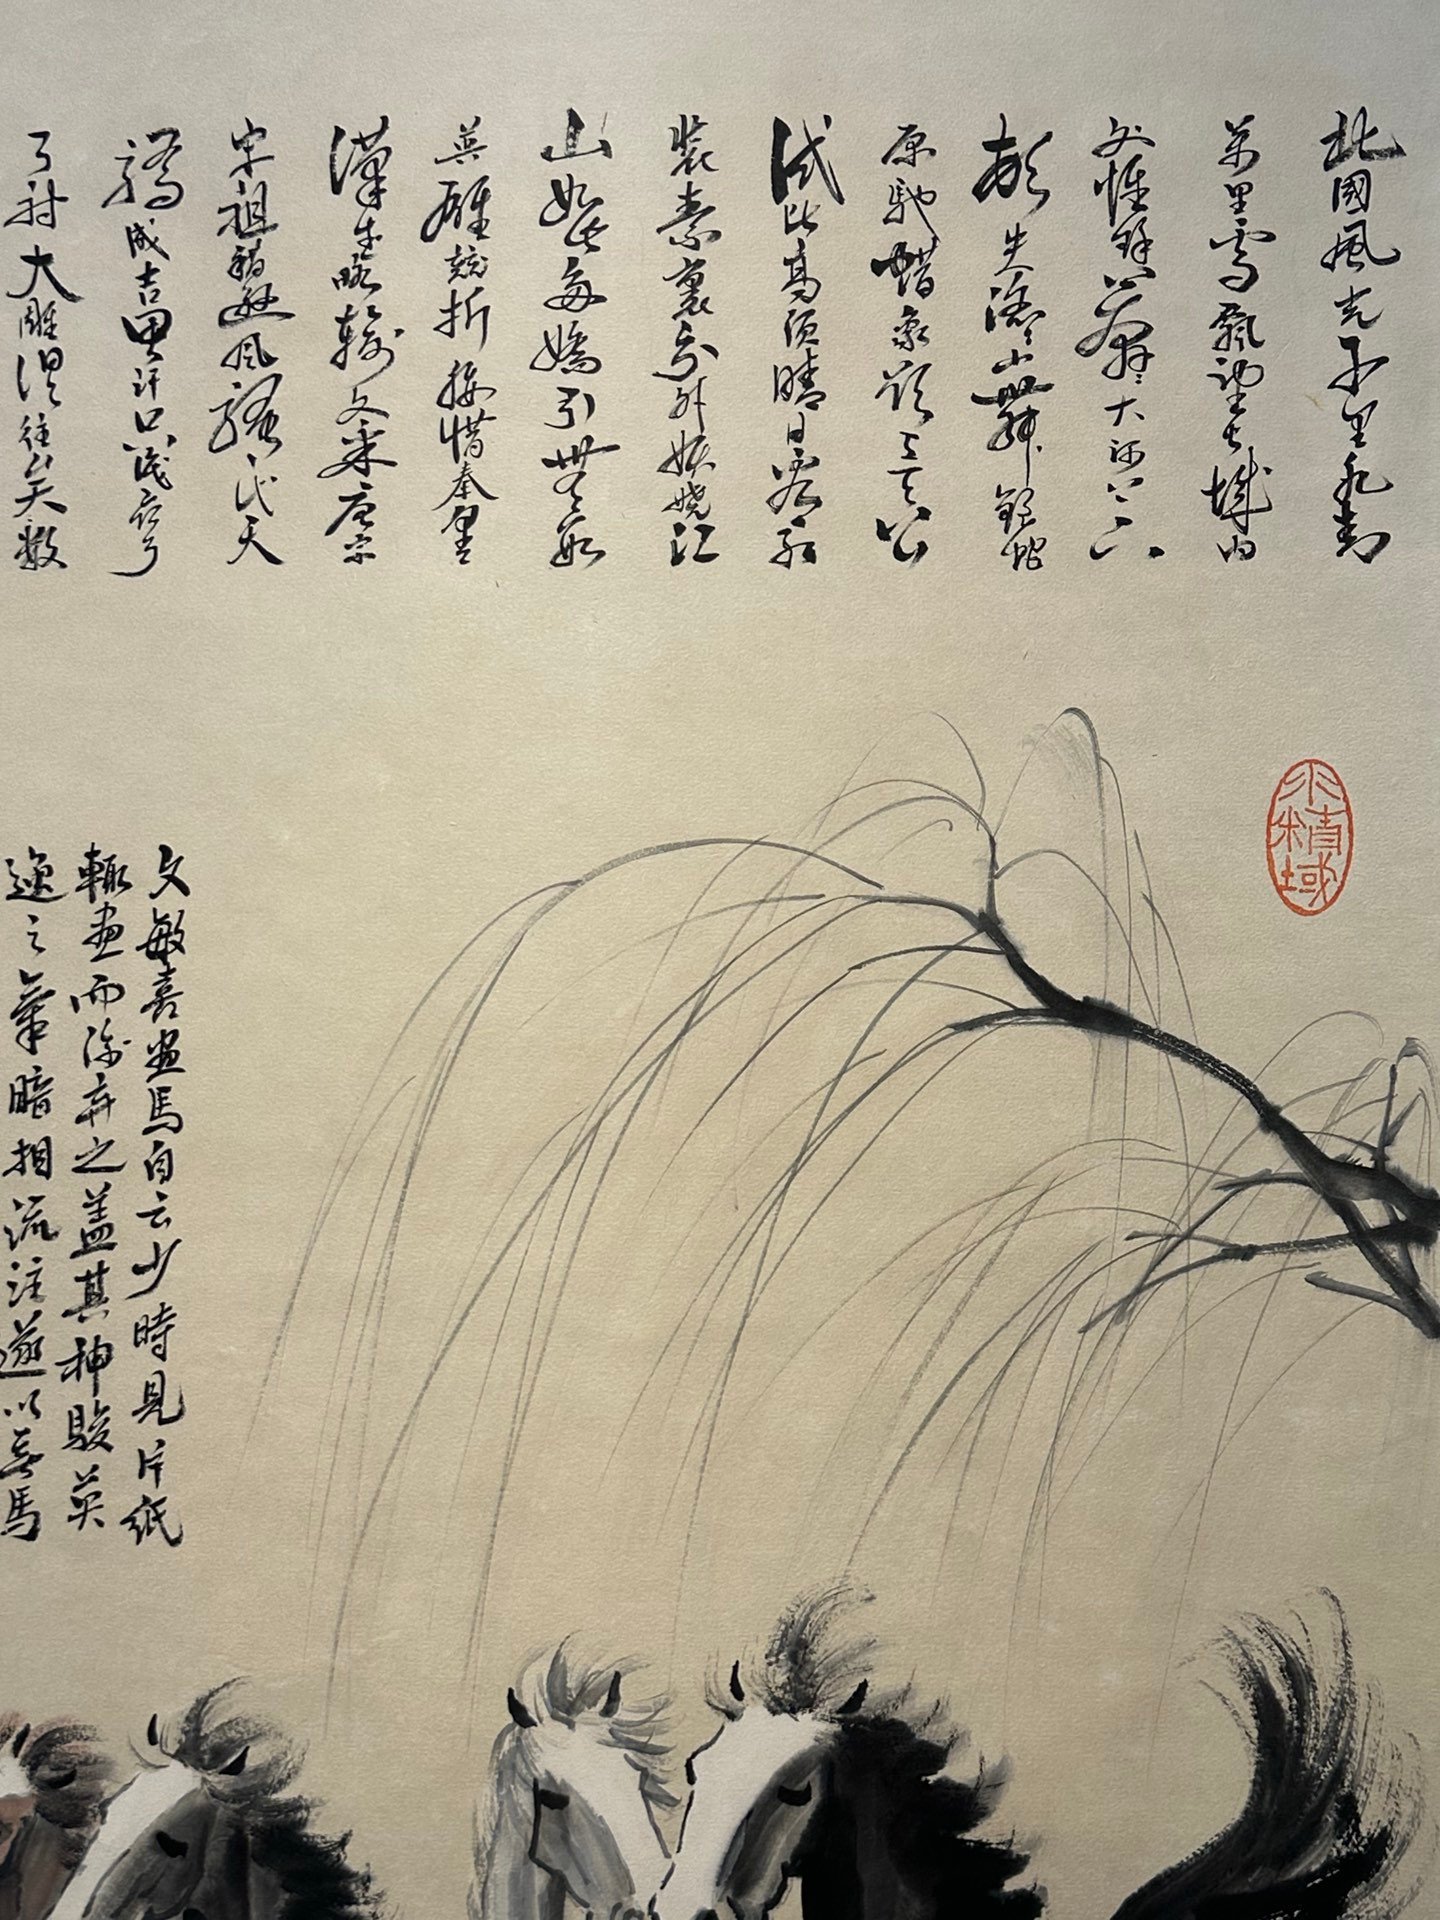 北國風光千里冰封
萬里雪飄望長城内
外惟餘莽々大河上下
頓失滔々山舞銀蛇
原馳蜡象欲与天公
試比高須晴日看紅
裝素裹分外妖嬈江
山如此多嬌引無數
英雄競折腰惜秦皇
漢武略輸文采唐宗
宋祖稍遜風騷一代天
驕成吉思汗只識彎
弓射大雕俱往矣數
水精域
文敏喜畫馬自云少時見片紙
輒畫而後弃之蓋其神駿英
逸之氣暗相流注遂以善馬